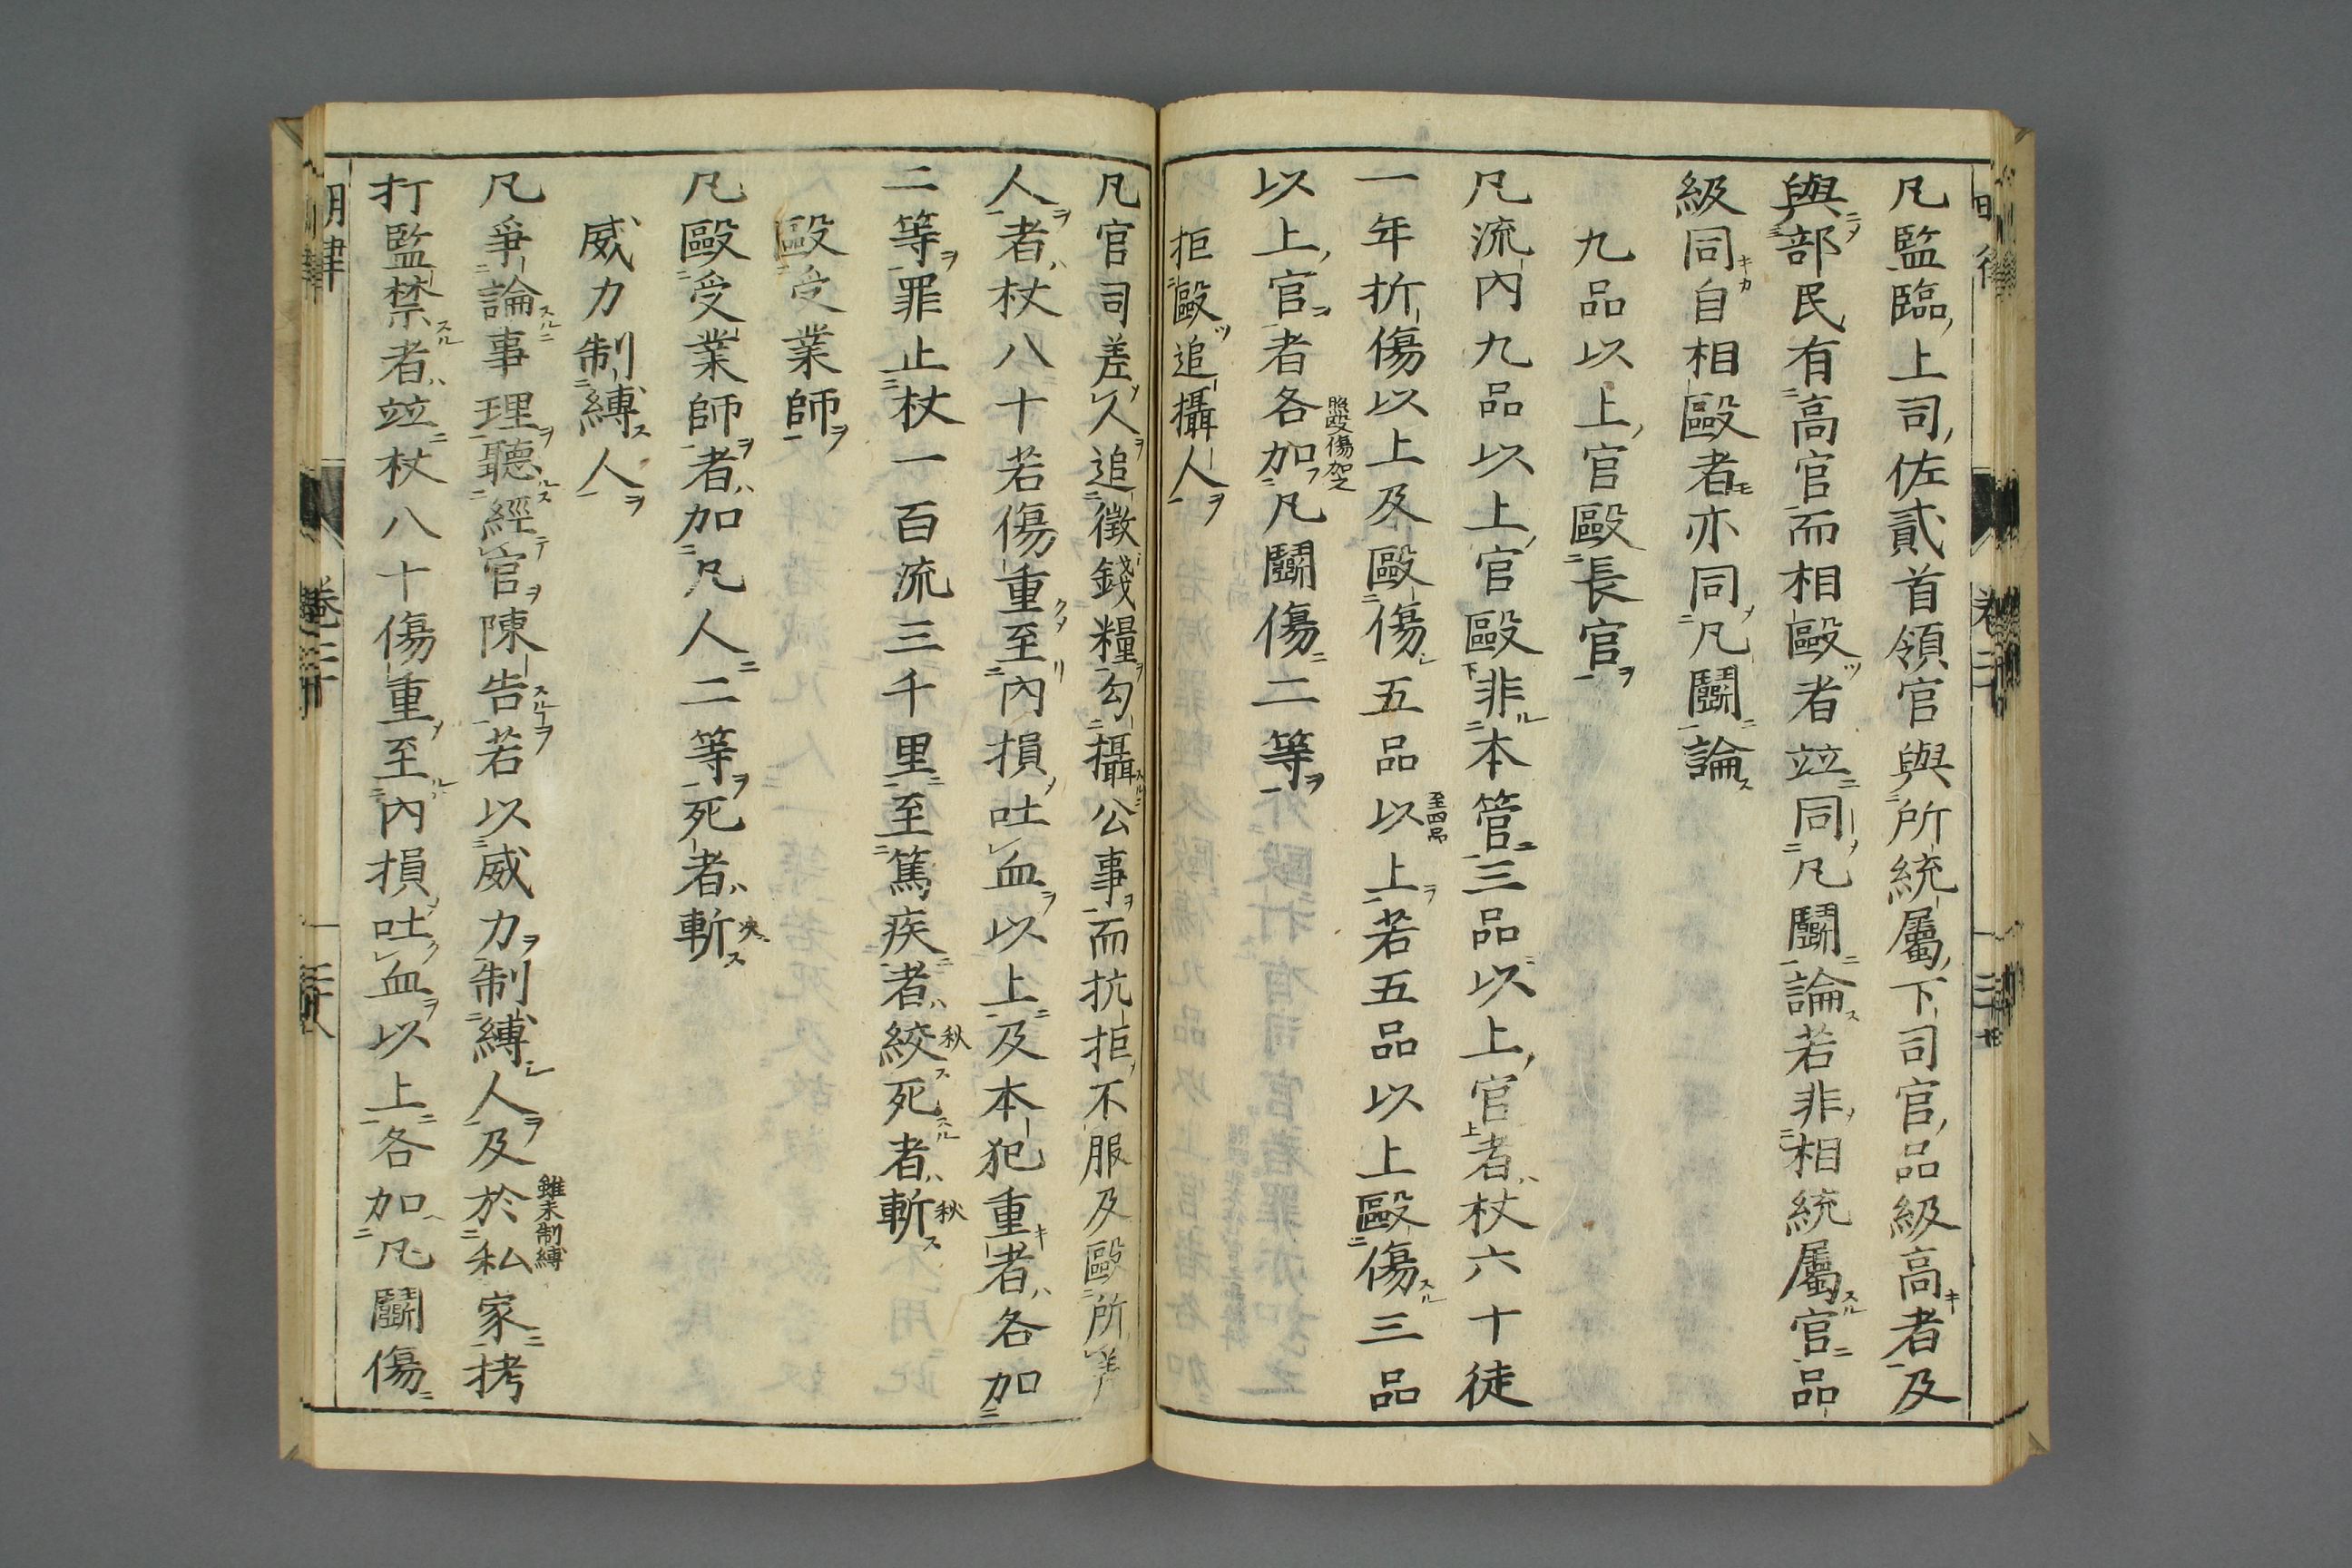 凡監臨上司佐貳首領官與所統屬下司官品級高者及
與部民有高官而相毆者竝同凡鬬論若非相統屬官品
級同自相毆者亦同凡鬬論
九品以上官毆長官
凡流內九品以上官毆非本管三品以上官者杖六十徒
一年折傷以上及毆傷五品以上若五品以上毆傷三品
至四品
以上官者各加凡鬬傷二等
照毆傷加之
拒毆追攝人
凡官司差人追徵錢糧勾攝公事而抗拒不服及毆所差
人者杖八十若傷重至內損吐血以上及本犯重者各加
二等罪止杖一百流三千里至篤疾者絞死者斬
秋
秋
毆受業師
凡毆受業師者加凡人二等死者斬
決
威力制縛人
凡爭論事理聽經官陳告若以威力制縛人及於私家拷
雖未制縛
打監禁者竝杖八十傷重至內損吐血以上各加凡鬬傷
明律
卷二十